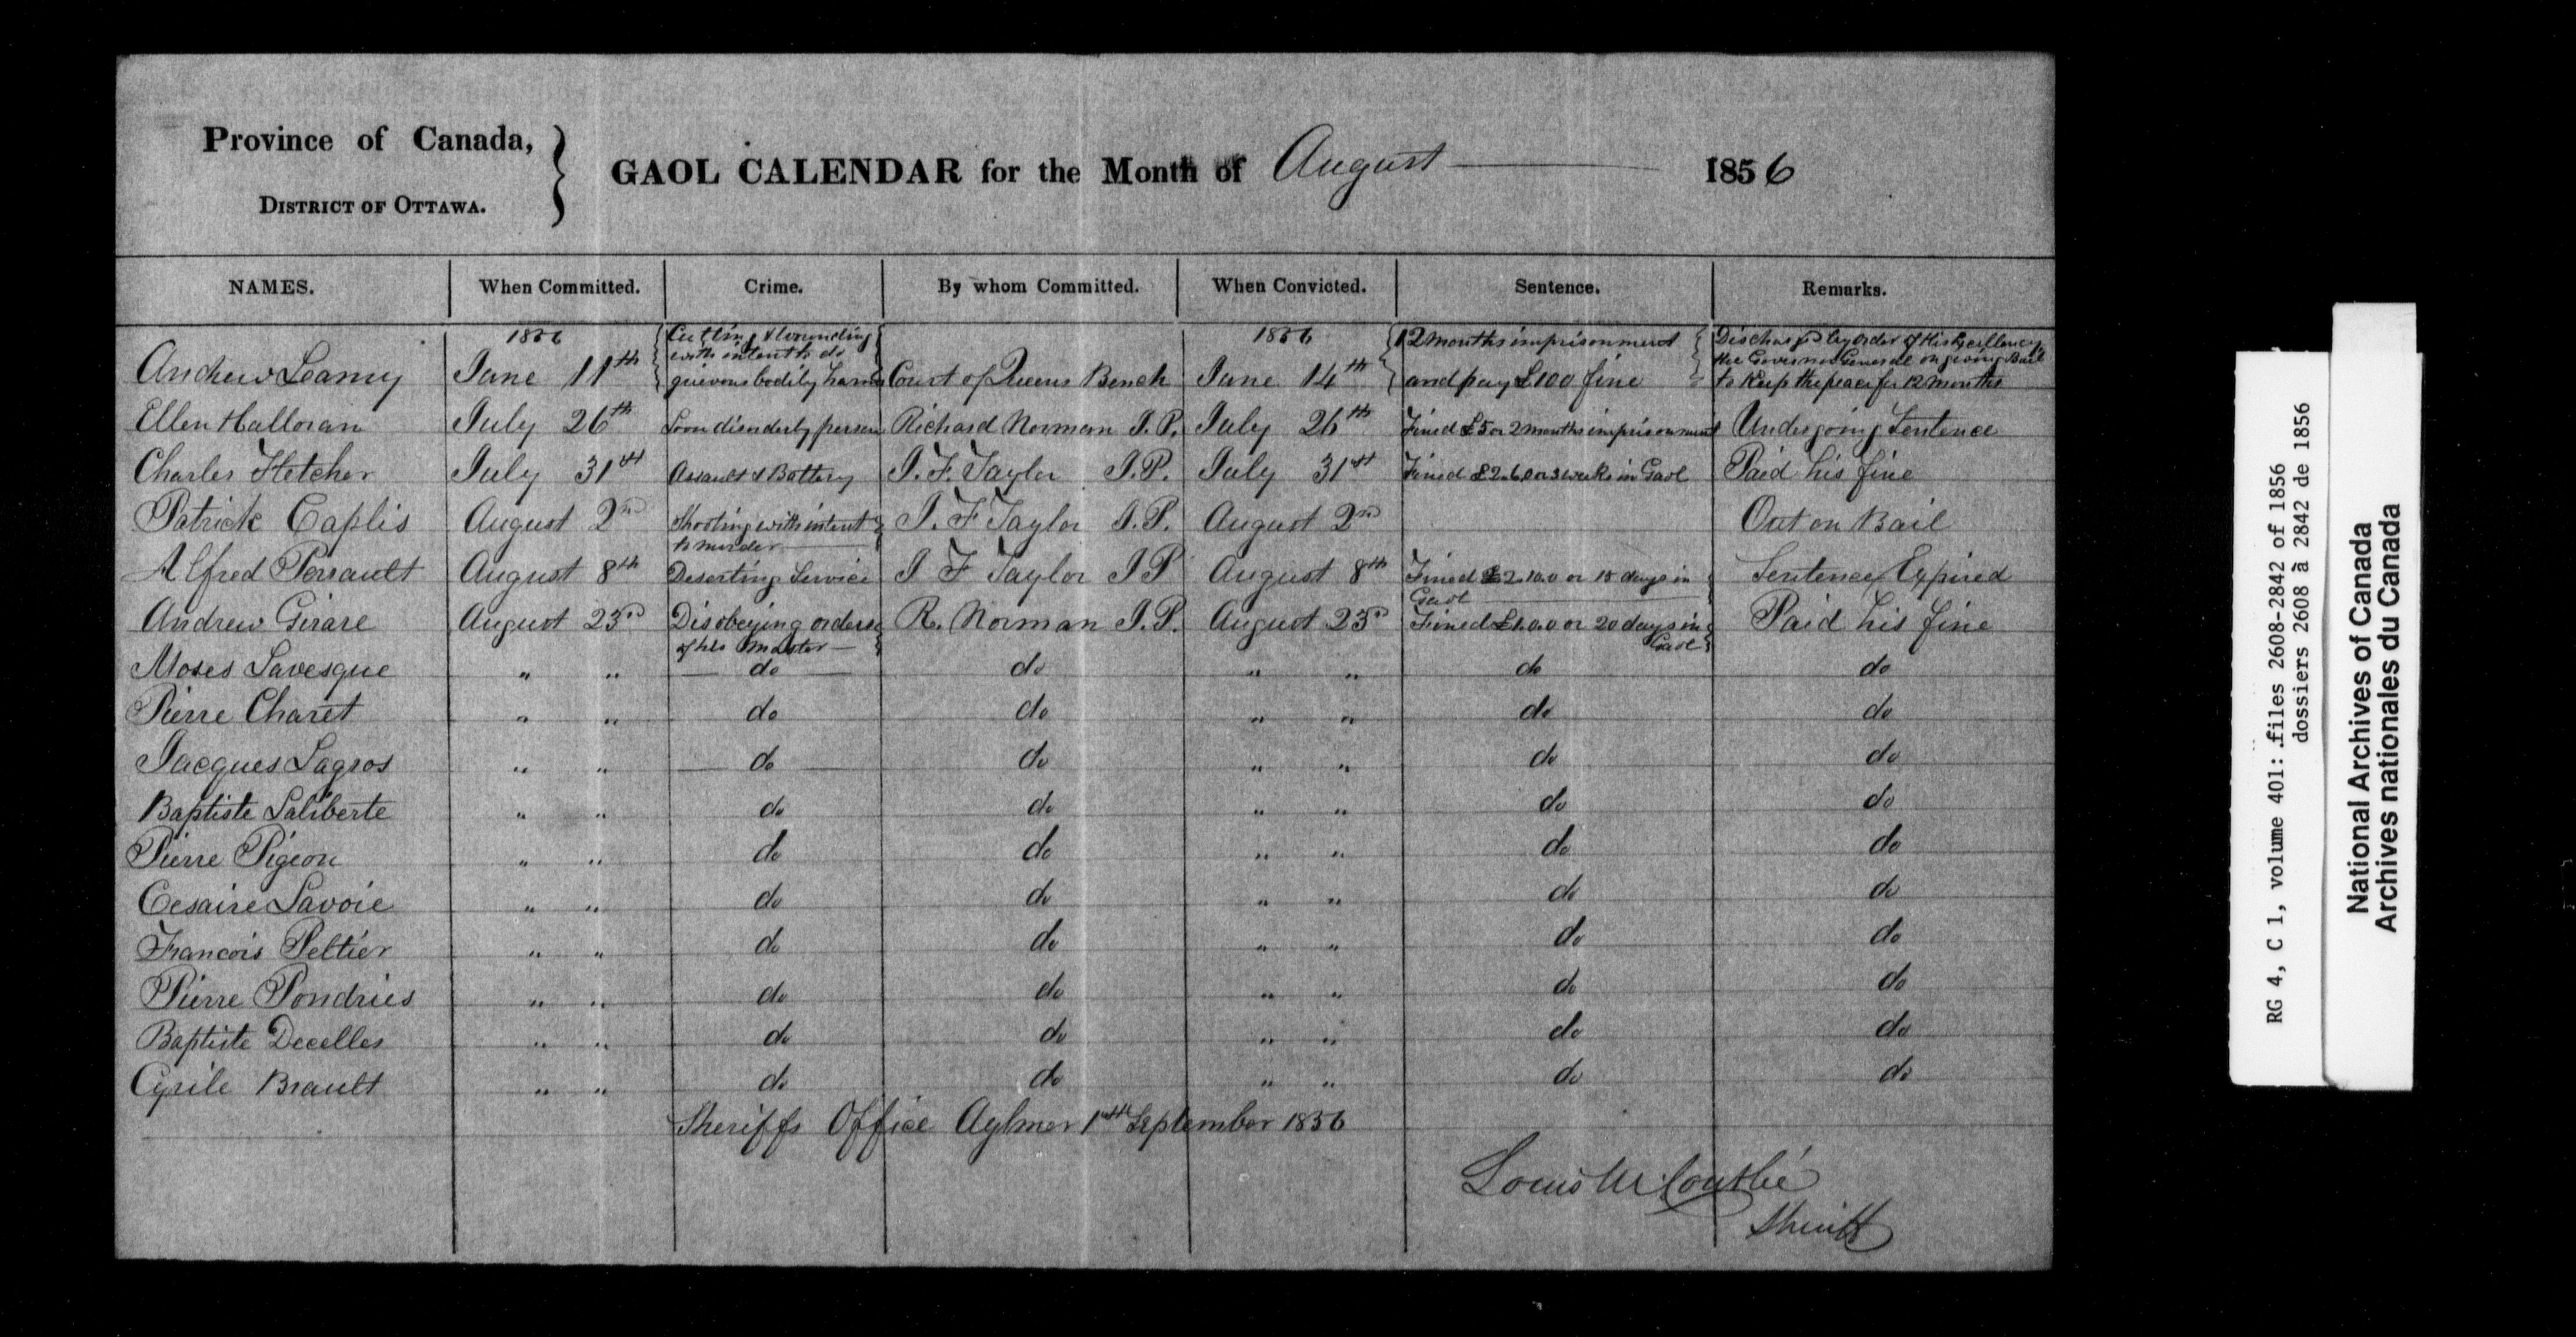 Province of Canada,
DISTRICT OF OTTAWA.
GAOL CALENDAR for the Month of August 1856
NAMES. When Committed. Crime. By whom Committed. When Convicted. Sentence. Remarks.
1856 Cutting & Wounding 1856 12 months imprisonment Discharged by order of His Excellency
with intent to do the Governor General on giving Bail
Andrew Leamy June 11th grievous bodily harm Court of Queens Bench June 14th and pay £100 fine to keep the peace for 12 months
Ellen Halloran July 26th disorderly person Richard Norman J.P. July 26th Fined £5 or 2 months imprisonment Undergoing Sentence
Charles Fletcher July 31st Assault & Battery J. F. Taylor J.P. July 31st Fined £2.6.0 or 3 weeks in Gaol Paid his fine
Patrick Caplis August 2nd Shooting with intent J. F Taylor J.P. August 2nd Out on Bail
to murder
Alfred Perrault August 8th Deserting Service J F Taylor J P August 8th Fined £2.10.0 or 15 days in Sentence Expired
Gaol
Andrew Girare August 23rd Disobeying orders R. Norman J.P. August 23rd Fined £1.0.0 or 20 days in Paid his fine
of his Master Gaol
Moses Lavesque " " do do " " do do
Pierre Charet " " do do " " do do
Jacques Lagros " " do do " " do do
Baptiste Laliberte " " do do " " do do
Pierre Pigeon " " do do " " do do
Cesaire Lavoie " " do do " " do do
Francois Peltier " " do do " " do do
Pierre Pondries " " do do " " do do
Baptiste Decelles " " do do " " do do
Cyrile Brault " " do do " " do do
Sheriffs Office Aylmer 1st September 1856
Louis M Coutlée
Sheriff
RG 4, C 1, volume 401: files 2608-2842 of 1856
dossiers 2608 à 2842 de 1856
National Archives of Canada
Archives nationales du Canada